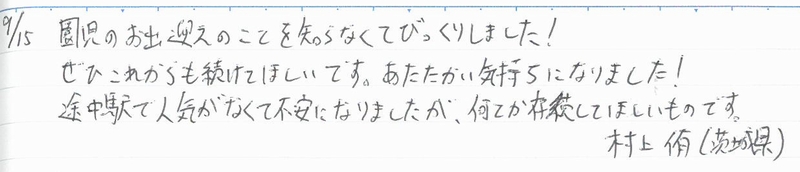 9/15 園児のお出迎えのことを知らなくてびっくりしました！
ぜひこれからも続けてほしいです。あたたかい気持ちになりました！
途中駅で人気がなくて不安になりましたが、何とか存続してほしいものです。
村上 侑（茨城県）